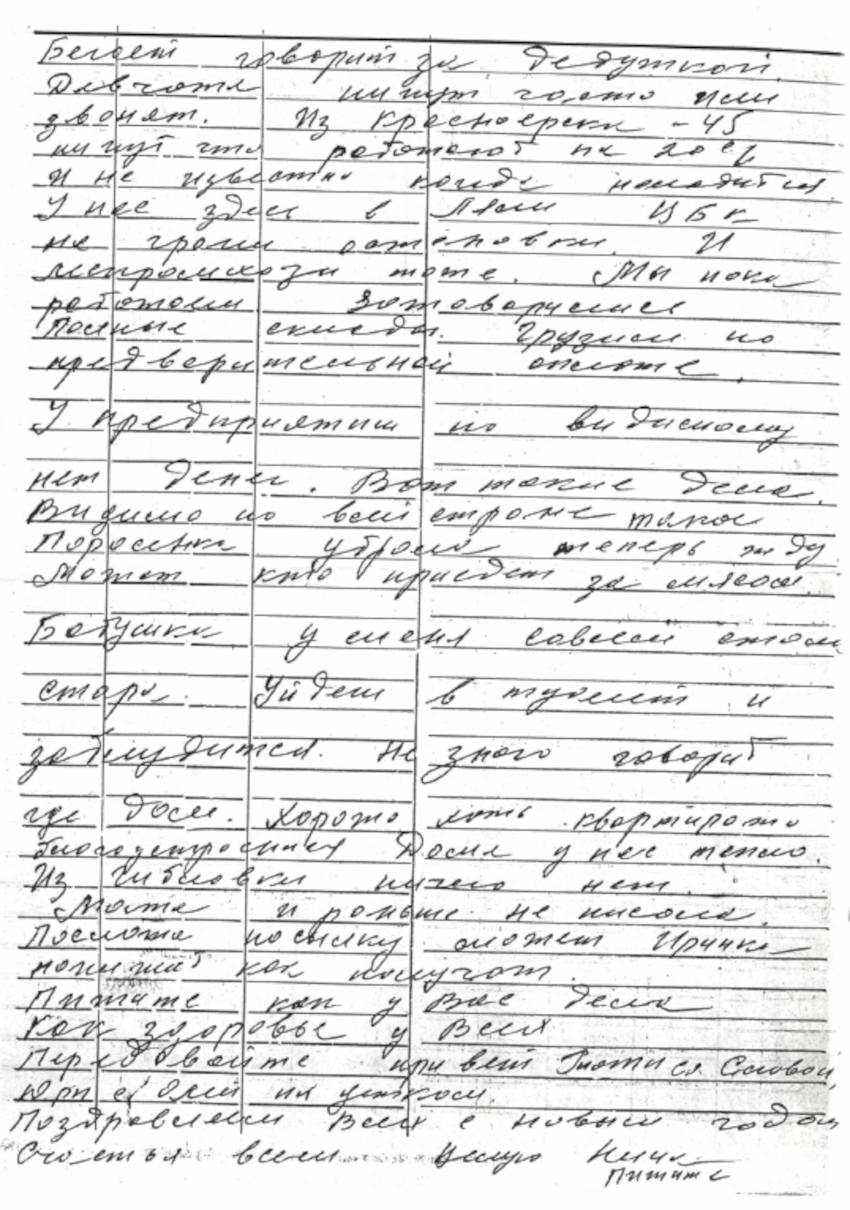 Бегает говорит за дедушкой.
Девчата пишут часто или
звонят. Из Красноярска - 45
пишут что работают на
и не известно когда наладится.
У нас здесь в Ляли ЦБК
на грани остановки. И
леспромхозы тоже. Мы пока
работаем. Затоварились
Полные склады. Грузим по
предварительной оплате.
У предприятии по видимому
нет денег. Вот такие дела.
Видимо по всей стране такое
Поросенка убрала теперь жду
Может кто приедет за мясом.
Бабушка у меня совсем стала
стара. Уйдет в туалет и
заблудится. Не знаю говорит
где дом. Хорошо хоть квартира
Дома у нас тепло.
Из ничего нет.
Мама и раньше не писала.
Послала посылку может Иринка
напишет как получат.
Пишите как у Вас дела
Как здоровье у Всех
Передавайте привет со Славой,
Юри с Олей и
Поздравляем Всех с новым годом
Счастья всем. Целую Нина
Пишите